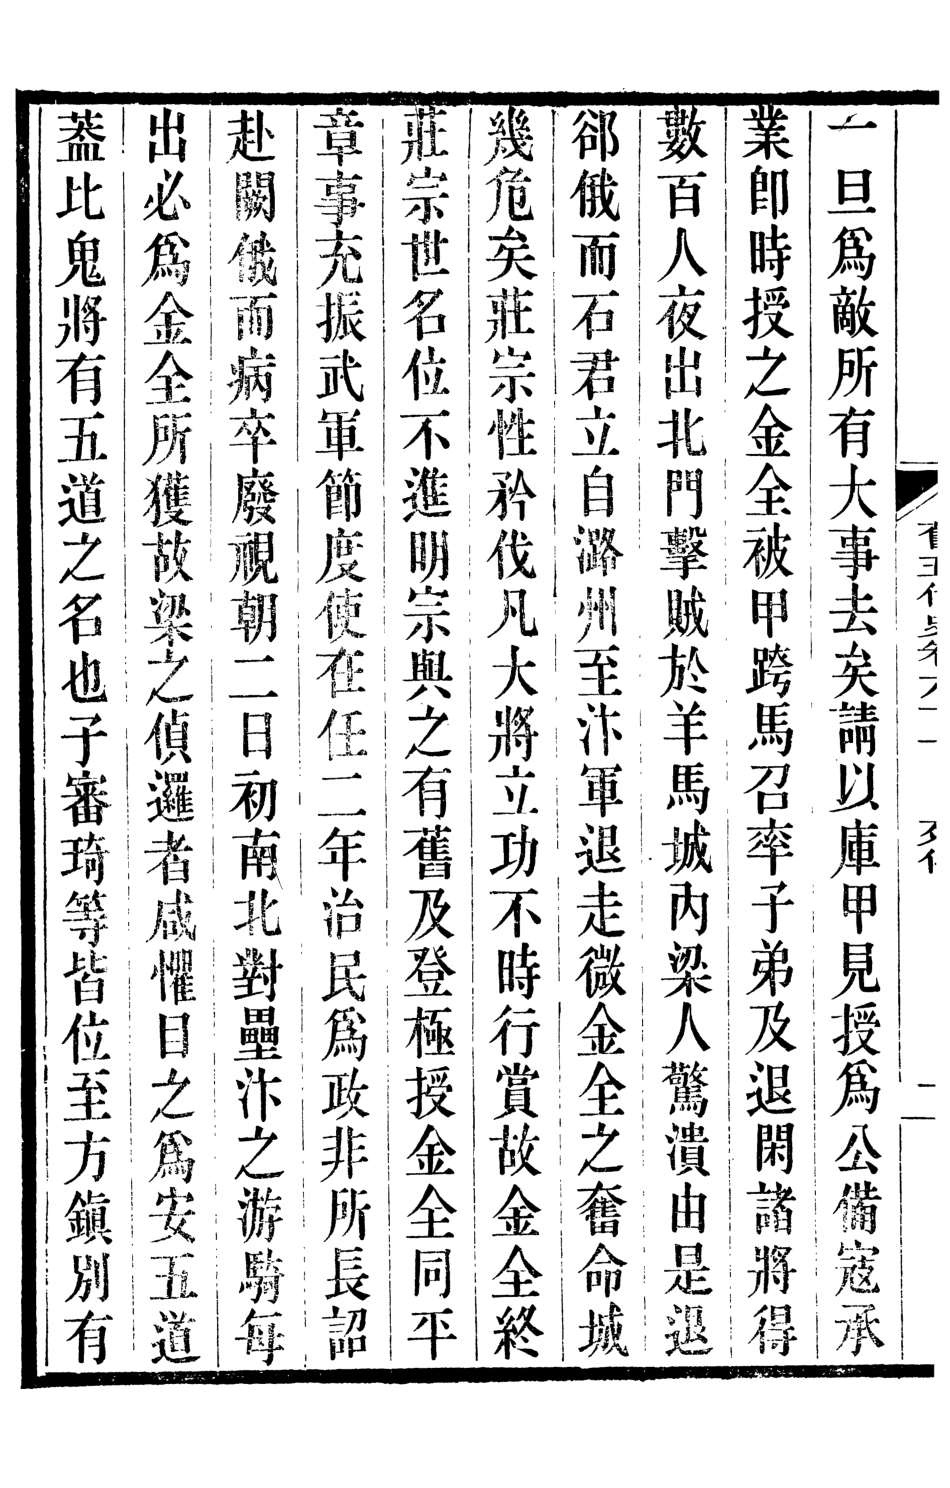 一旦爲敵所有大事去矣請以庫甲見授爲公備寇承
業卽時授之金全被甲跨馬召率子弟及退閑諸將得
數百人夜出北門擊賊於羊馬城內梁人驚潰由是退
郤俄而石君立自潞州至汴軍退走微金全之奮命城
幾危矣莊宗性矜伐凡大將立功不時行賞故金全終
莊宗世名位不進明宗與之有舊及登極授金全同平
章事充振武軍節度使在任二年治民爲政非所長詔
赴闕俄而病卒廢視朝二日初南北對壘汴之游騎每
出必爲金全所獲故梁之偵邏者咸懼目之爲安五道
葢比鬼將有五道之名也子審琦等皆位至方鎮別有